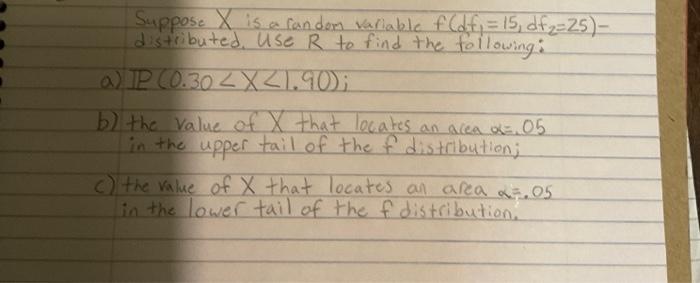 Suppose X is a random variable f(df₁=15, df₂=25)-
distributed. Use R to find the following:
a) IP (0.30 < X < 1.90);
b) the value of X that locates an area α=.05
in the upper tail of the f distribution;
c) the value of X that locates an area α=.05
in the lower tail of the f distribution.